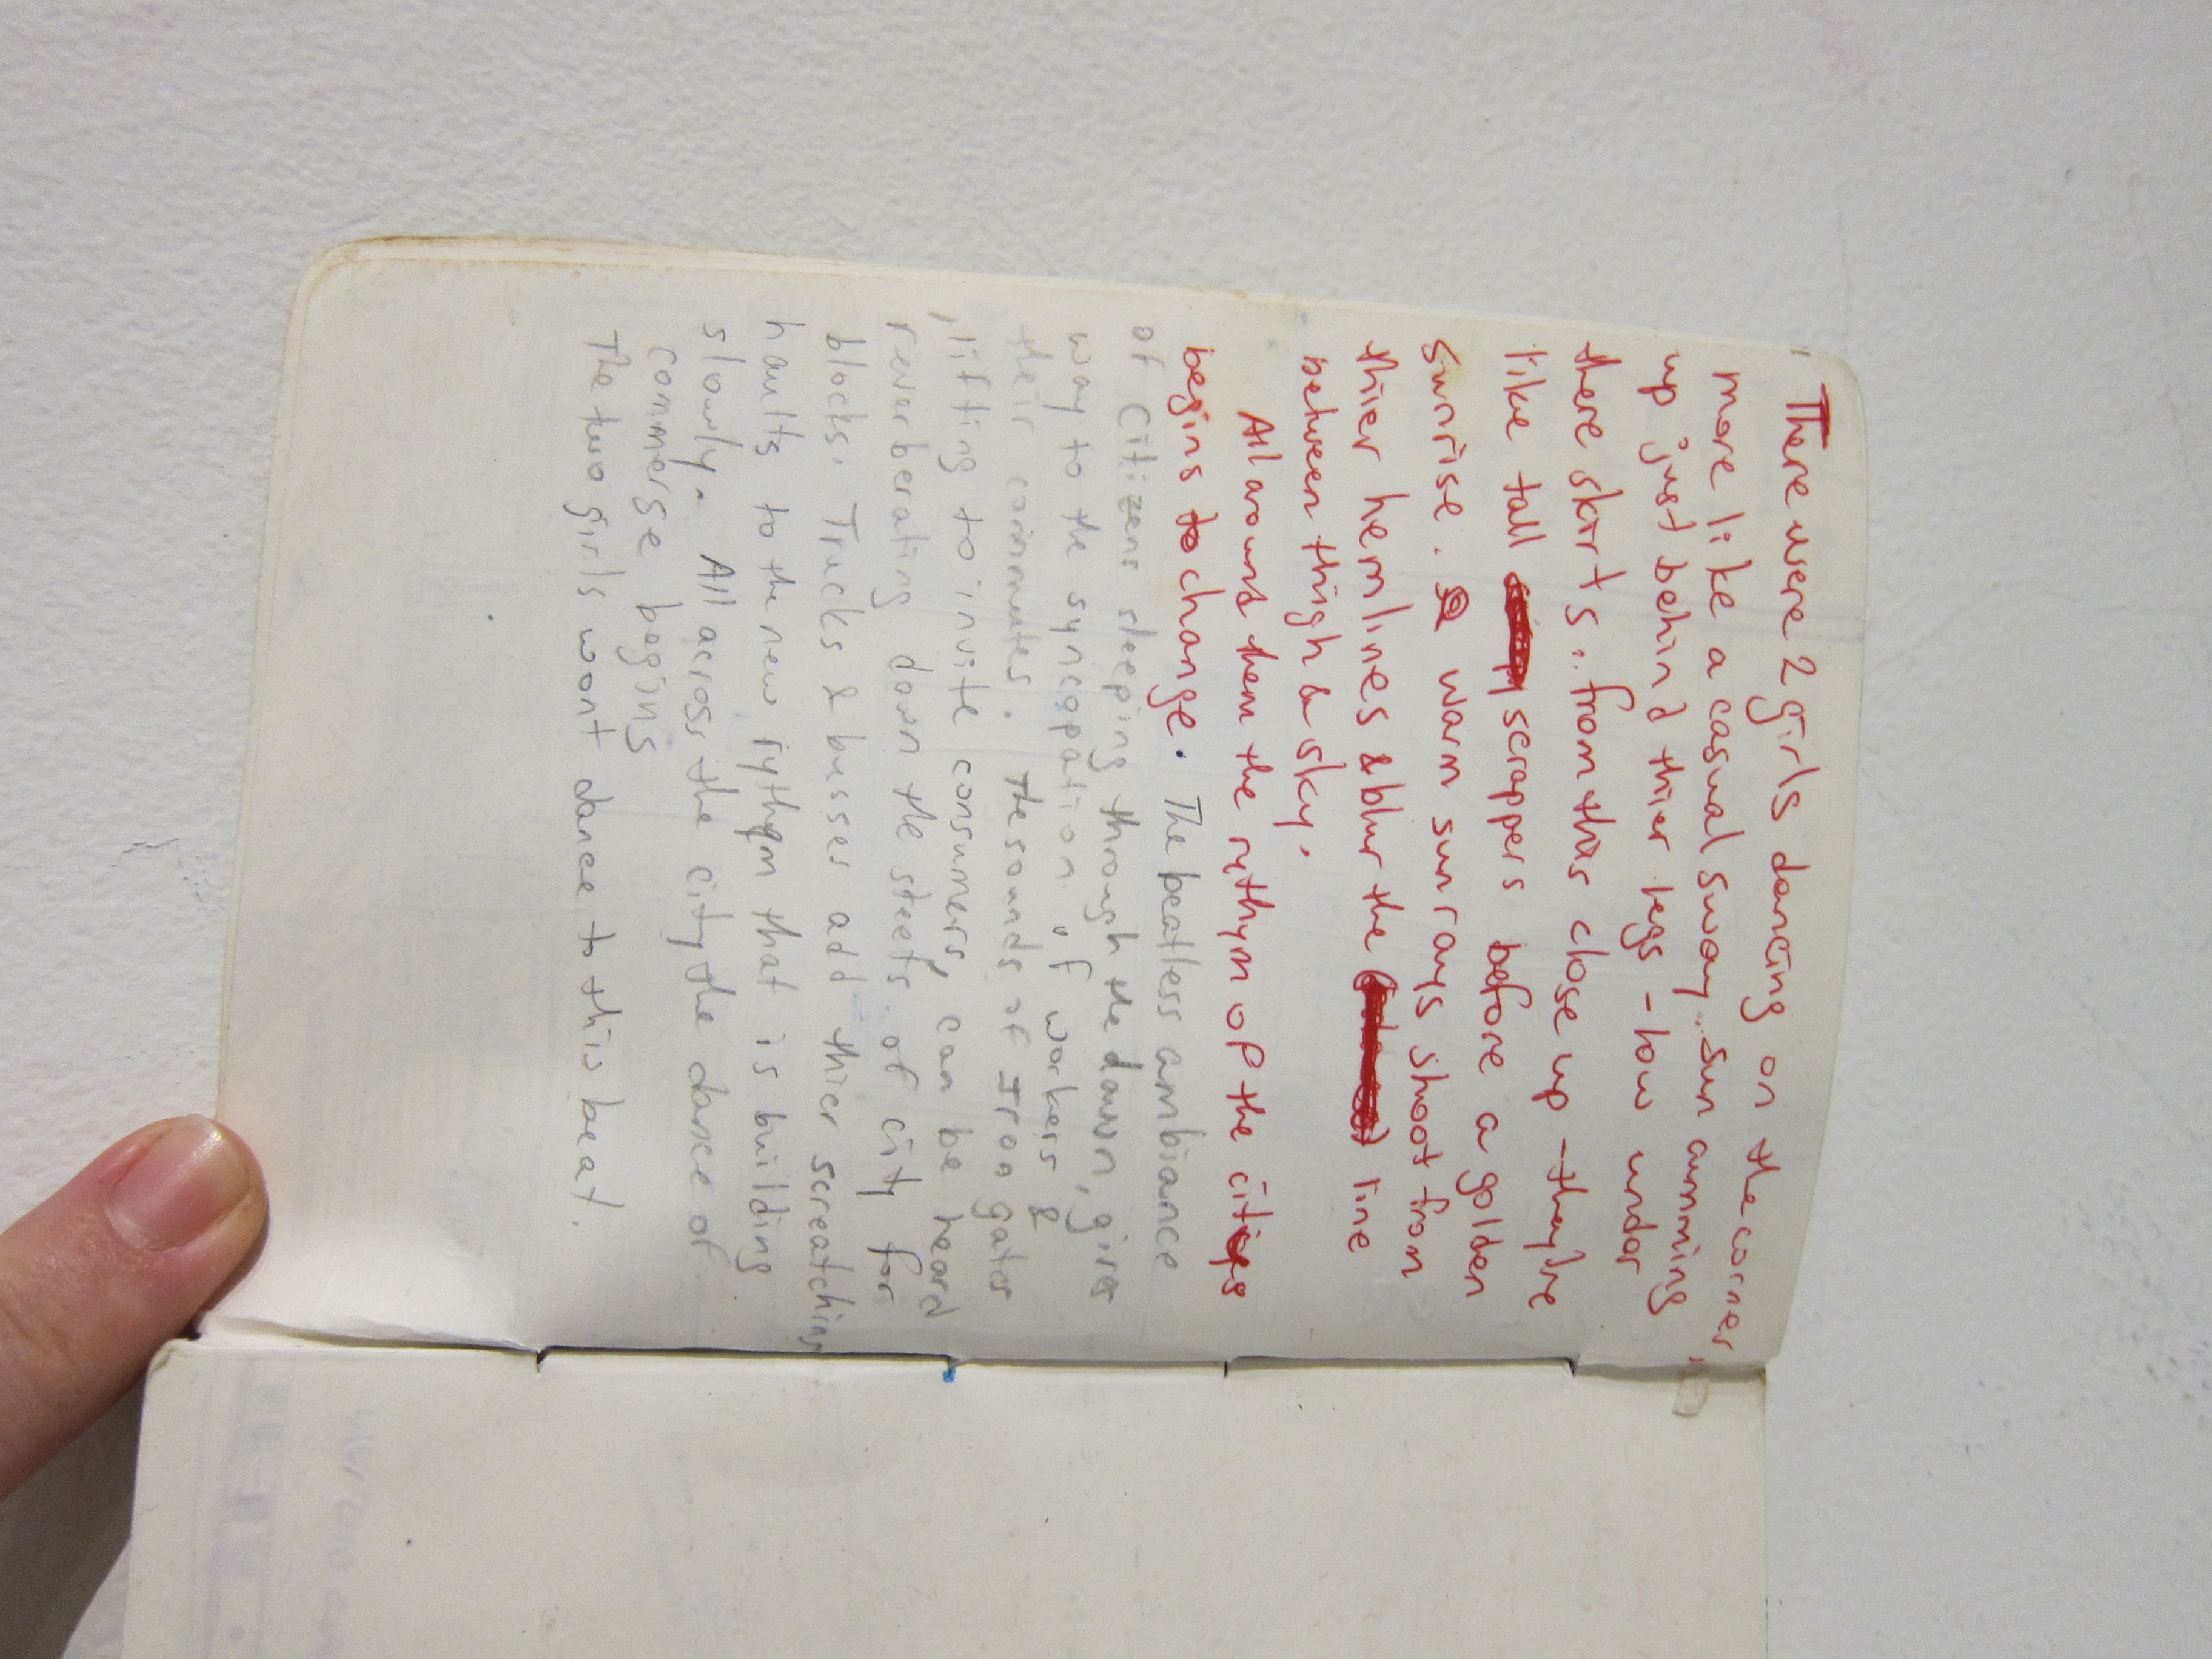 There were 2 girls dancing on the corner,
more like a casual sway.. Sun cumming
up just behind thier legs - low under
there skirts... from this close up - they're
like tall scrappers before a golden
sunrise. warm sunrays shoot from
thier hemlines & blur the line
between thigh & sky.
All around them the rythym of the citys
begins to change. The beatless ambiance
of Citizens sleeping through the dawn, gives
way to the syncopation of workers &
their commutes. The sounds of Iron gates
,lifting to invite consumers, can be heard
reverberating down the steets of city for
blocks. Trucks & busses add thier screatching
haults to the new rythym that is building
slowly. All across the city the dance of
commerse begins
The two girls wont dance to this beat.